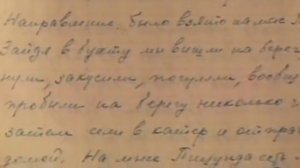 Направление было взято на мыс
Зайдя в бухту мы вышли на берег
нули, закусили, погуляли, вообщ
пробыли на берегу несколько
затем сели в катер и отправ
домой. На мысе Пицунда